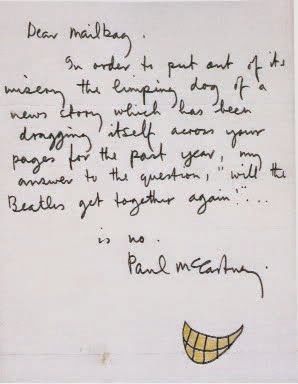 Dear Mailbag.
In order to put out of its
misery the limping dog of a
news story which has been
dragging itself across your
pages for the past year, my
answer to the question, "will the
Beatles get together again"...
is no.
Paul McCartney.